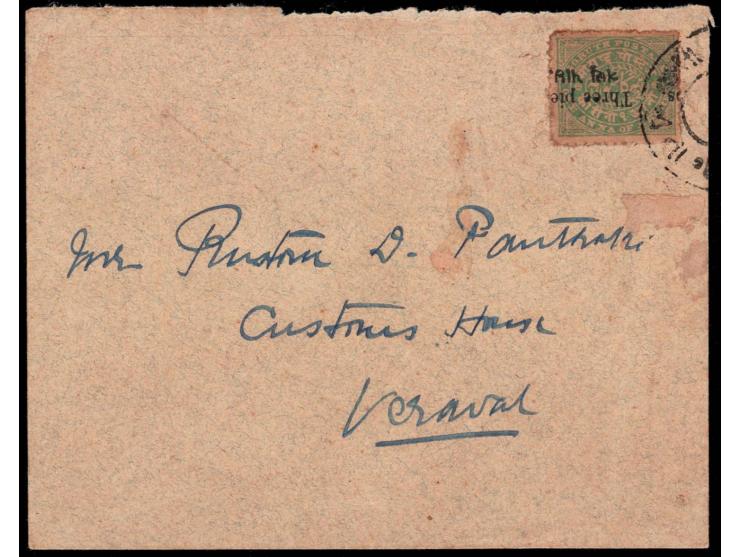 Three pies.
Mr Rustom D. Panthaki
Customs House
Veraval